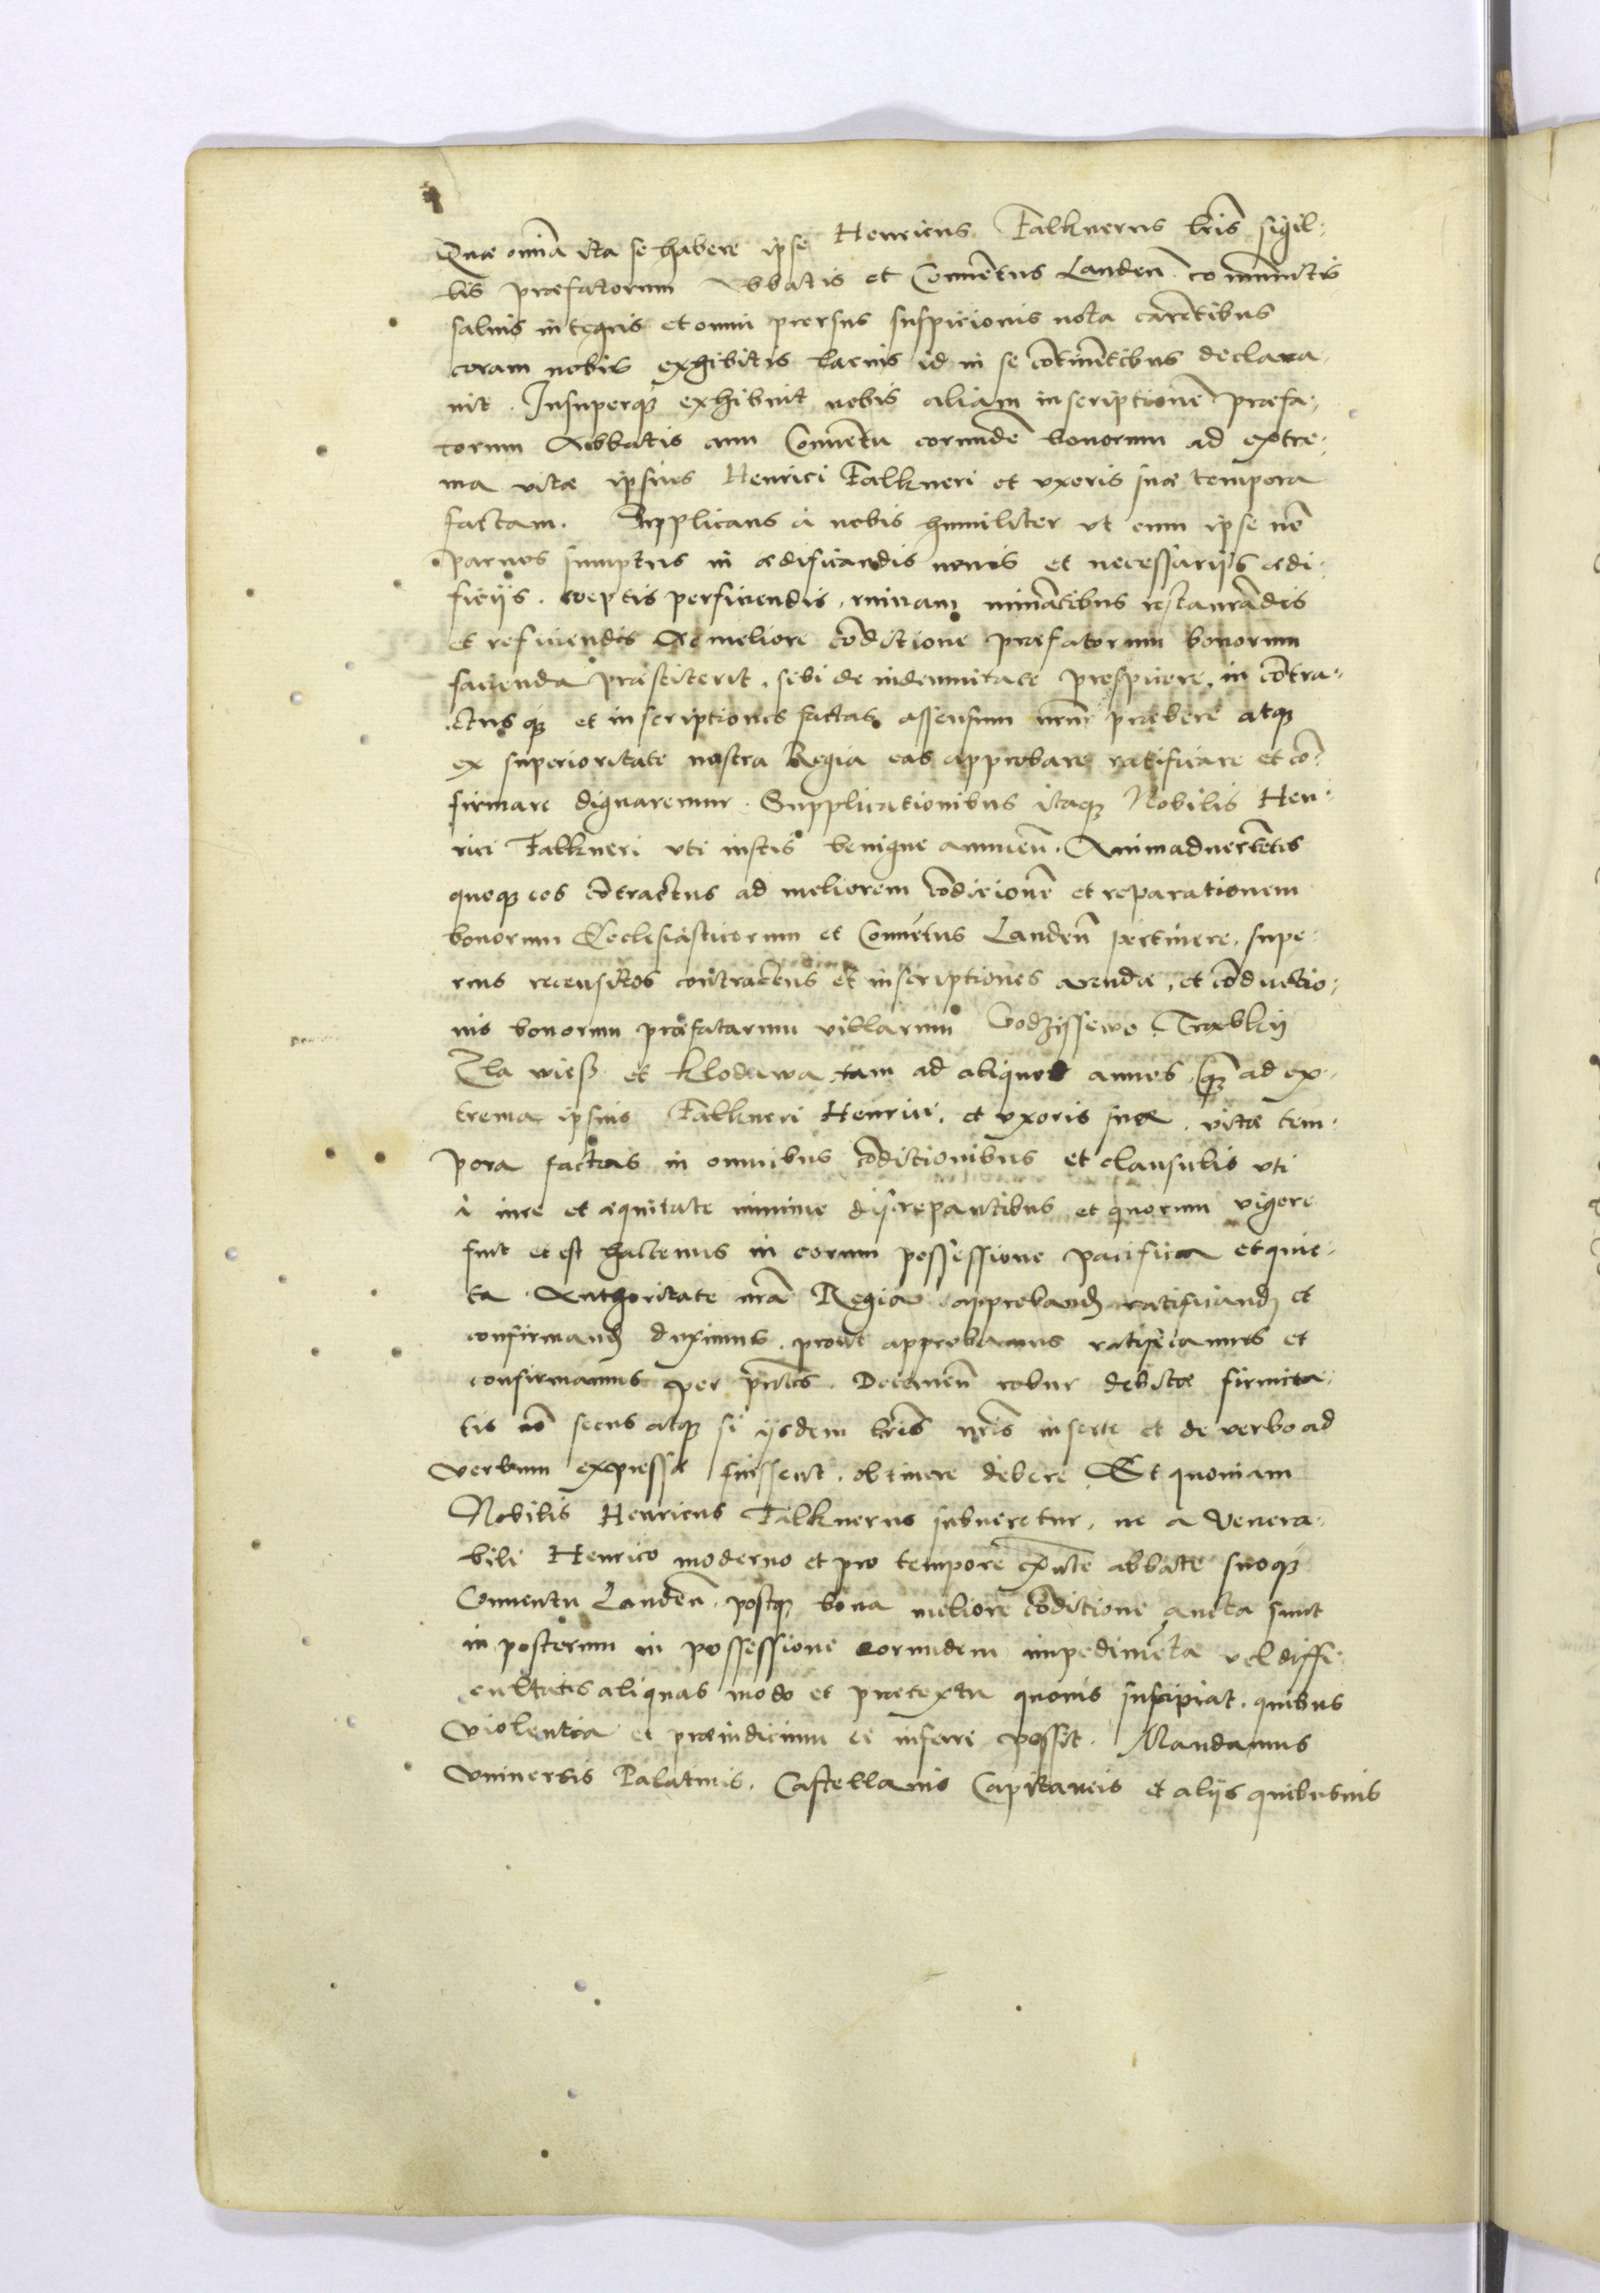 Quae omnia ita se habere ipse Henricus Falknerus lris sigil-
lis praefatorum Abbatis et Conventus Landen̄ communitis
salvis integris et omni prorsus suspicionis nota carētibus
coram nobis exhibitis lacius id in se cōtinētibus declara-
vit. Insuperq; exhibuit nobis aliam inscriptionē praefa-
torum Abbatis cum Conventu eorundē bonorum ad extre-
ma vitae ipsius Henrici Falkneri et uxoris suae tempora
factam. Supplicans à nobis humiliter ut cum ipse nō
parvos sumptus in aedificandis novis et necessarijs aedi-
ficijs, coeptis perficiendis, ruinam minātibus restaurādis
et reficiendis Ac meliore cōditione praefatorum bonorum
facienda praestiterit, sibi de indemnitate prospicere, in cōtra-
ctusq; et inscriptiones factas assensum nrm̄ praebere atq;
ex superioritate nostra Regia eas approbare ratificare et cō-
firmare dignaremur. Supplicationibus itaq; Nobilis Hen-
rici Falkneri uti iustis benigne annuen̄. Animadvertētes
quoq; eos cōtractus ad meliorem cōdicionē et reparationem
bonorum Ecclesiasticorum et Convētus Landen̄ pertinere, supe-
rius recensitos contractus et inscriptiones arendae, et cōductio-
nis bonorum praefatarum villarum Godzissewo Trablij
Zla wiesz et Klodawa tam ad aliquod annos, q̄ ad ex-
trema ipsius Falkneri Henrici, et uxoris suae, vitae tem-
pora factas in omnibus cōditionibus et clausulis uti
à iure et aequitate minime discrepantibus et quorum vigore
fuit et est hactenus in eorum possessione pacifica et quie-
ta Authoritate nrā Regia approband ratificand et
confirmand duximus, prout approbamus ratificamus et
confirmamus per pn̄tes. Decernen̄ robur debitae firmita-
tis nō secus atq; si ijsdem lris nris inserte et de verbo ad
verbum expressae fuissent, obtinere debere. Et quoniam
Nobilis Henricus Falknerus subveretur, ne a Venera-
bili Henrico moderno et pro tempore exn̄te abbate suoq;
Conventu Landen̄, postq; bona meliore cōditione aucta sunt
in posterum in possessione eorundem impedimēta vel diffi-
cultatis aliquas modo et praetextu quovis suscipiat, quibus
violentia et praeiudicium ei inferri possit. Mandamus
Universis Palatinis, Castellanis Capitaneis et alijs quibusvis